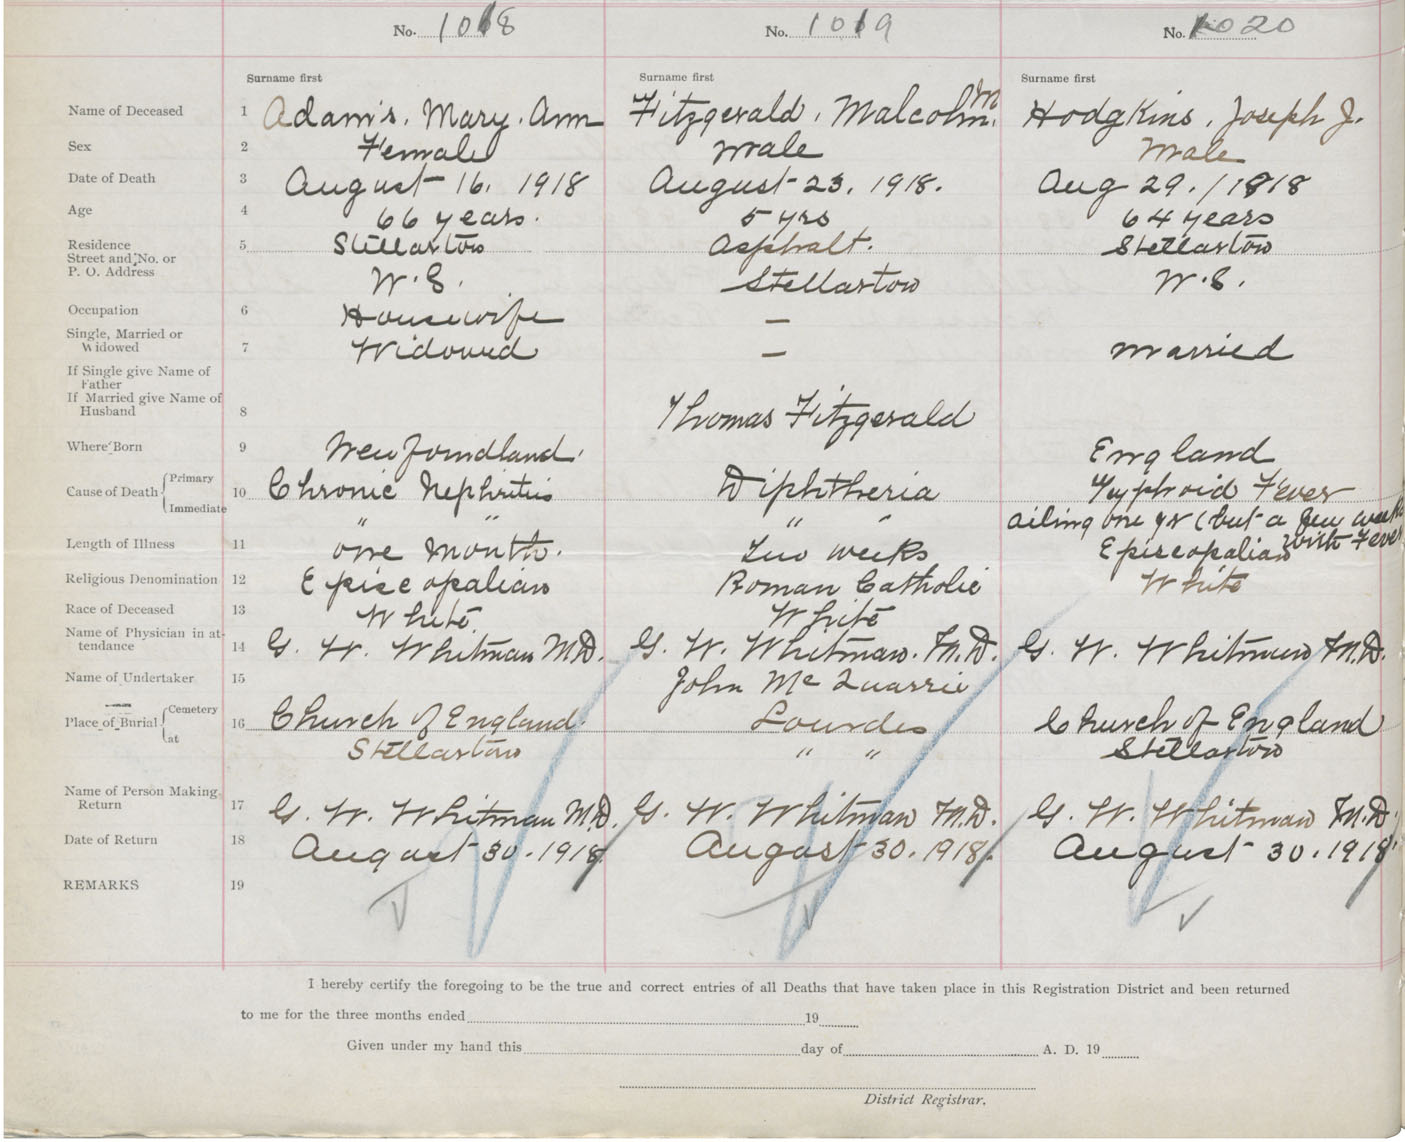 No. 1018 No. 1019 No. 1020
Surname first Surname first Surname first
Name of Deceased 1 Adams, Mary, Ann Fitzgerald, Malcolm. M Hodgkins, Joseph J.
Sex 2 Female Male Male
Date of Death 3 August 16. 1918 August 23. 1918. Aug 29. / 1818
Age 4 66 years. 5 yrs 64 years
Residence 5 Stellarton Asphalt. Stellarton
Street and No. or
P. O. Address W. S. Stellarton W. S.
Occupation 6 Housewife —
Single, Married or
Widowed 7 Widowed — Married
If Single give Name of
Father
If Married give Name of
Husband 8 Thomas Fitzgerald
Where Born 9 Newfoundland. England
Cause of Death { Primary 10 Chronic Nephritis Diphtheria Typhoid Fever
Immediate " " " " ailing one yr (but a few weeks
with Fever
Length of Illness 11 one month. Two weeks Episcopalian
Religious Denomination 12 Episcopalian Roman Catholic White
Race of Deceased 13 White White
Name of Physician in at-
tendance 14 G. W. Whitman M.D. G. W. Whitman. M.D. G. W. Whitman M.D.
Name of Undertaker 15 John McQuarrie
Place of Burial { Cemetery 16 Church of England. Lourdes Church of England
at Stellarton " " Stellarton
Name of Person Making
Return 17 G. W. Whitman M.D. G. W. Whitman M.D. G. W. Whitman M.D.
Date of Return 18 August 30. 1918 August 30. 1918. August 30. 1918.
REMARKS 19
I hereby certify the foregoing to be the true and correct entries of all Deaths that have taken place in this Registration District and been returned
to me for the three months ended 19
Given under my hand this day of A. D. 19
District Registrar.